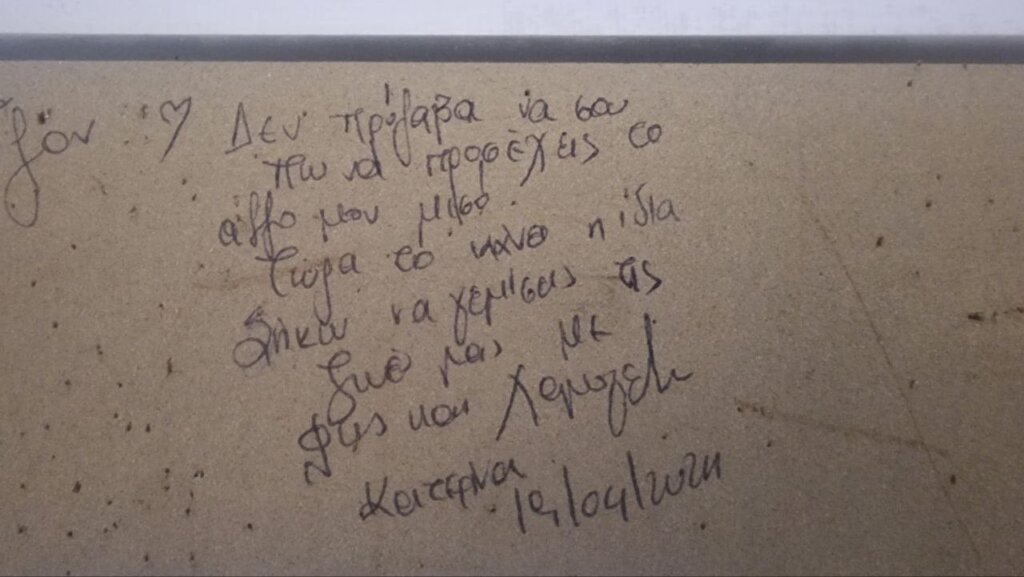 ♡ Δεν πρόλαβα να σου
πω να προσέχεις το
άλλο μου μισό.
Τώρα το κάνω η ίδια
Σήκω να γεμίσεις τις
ζωές μας με
φως και χαμόγελα
Κατερίνα
19/04/2021